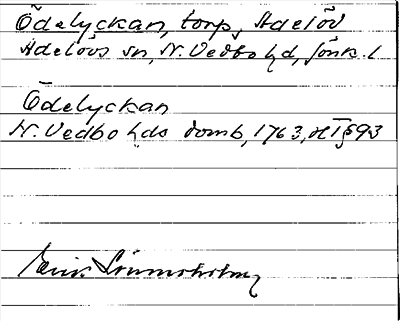 Ödelyckan, torp, Adelöv
Adelövs sn, N. Vedbo hd, Jönk. l
Ödelyckan
N. Vedbo hds domb, 1763, ht § 93
Erik